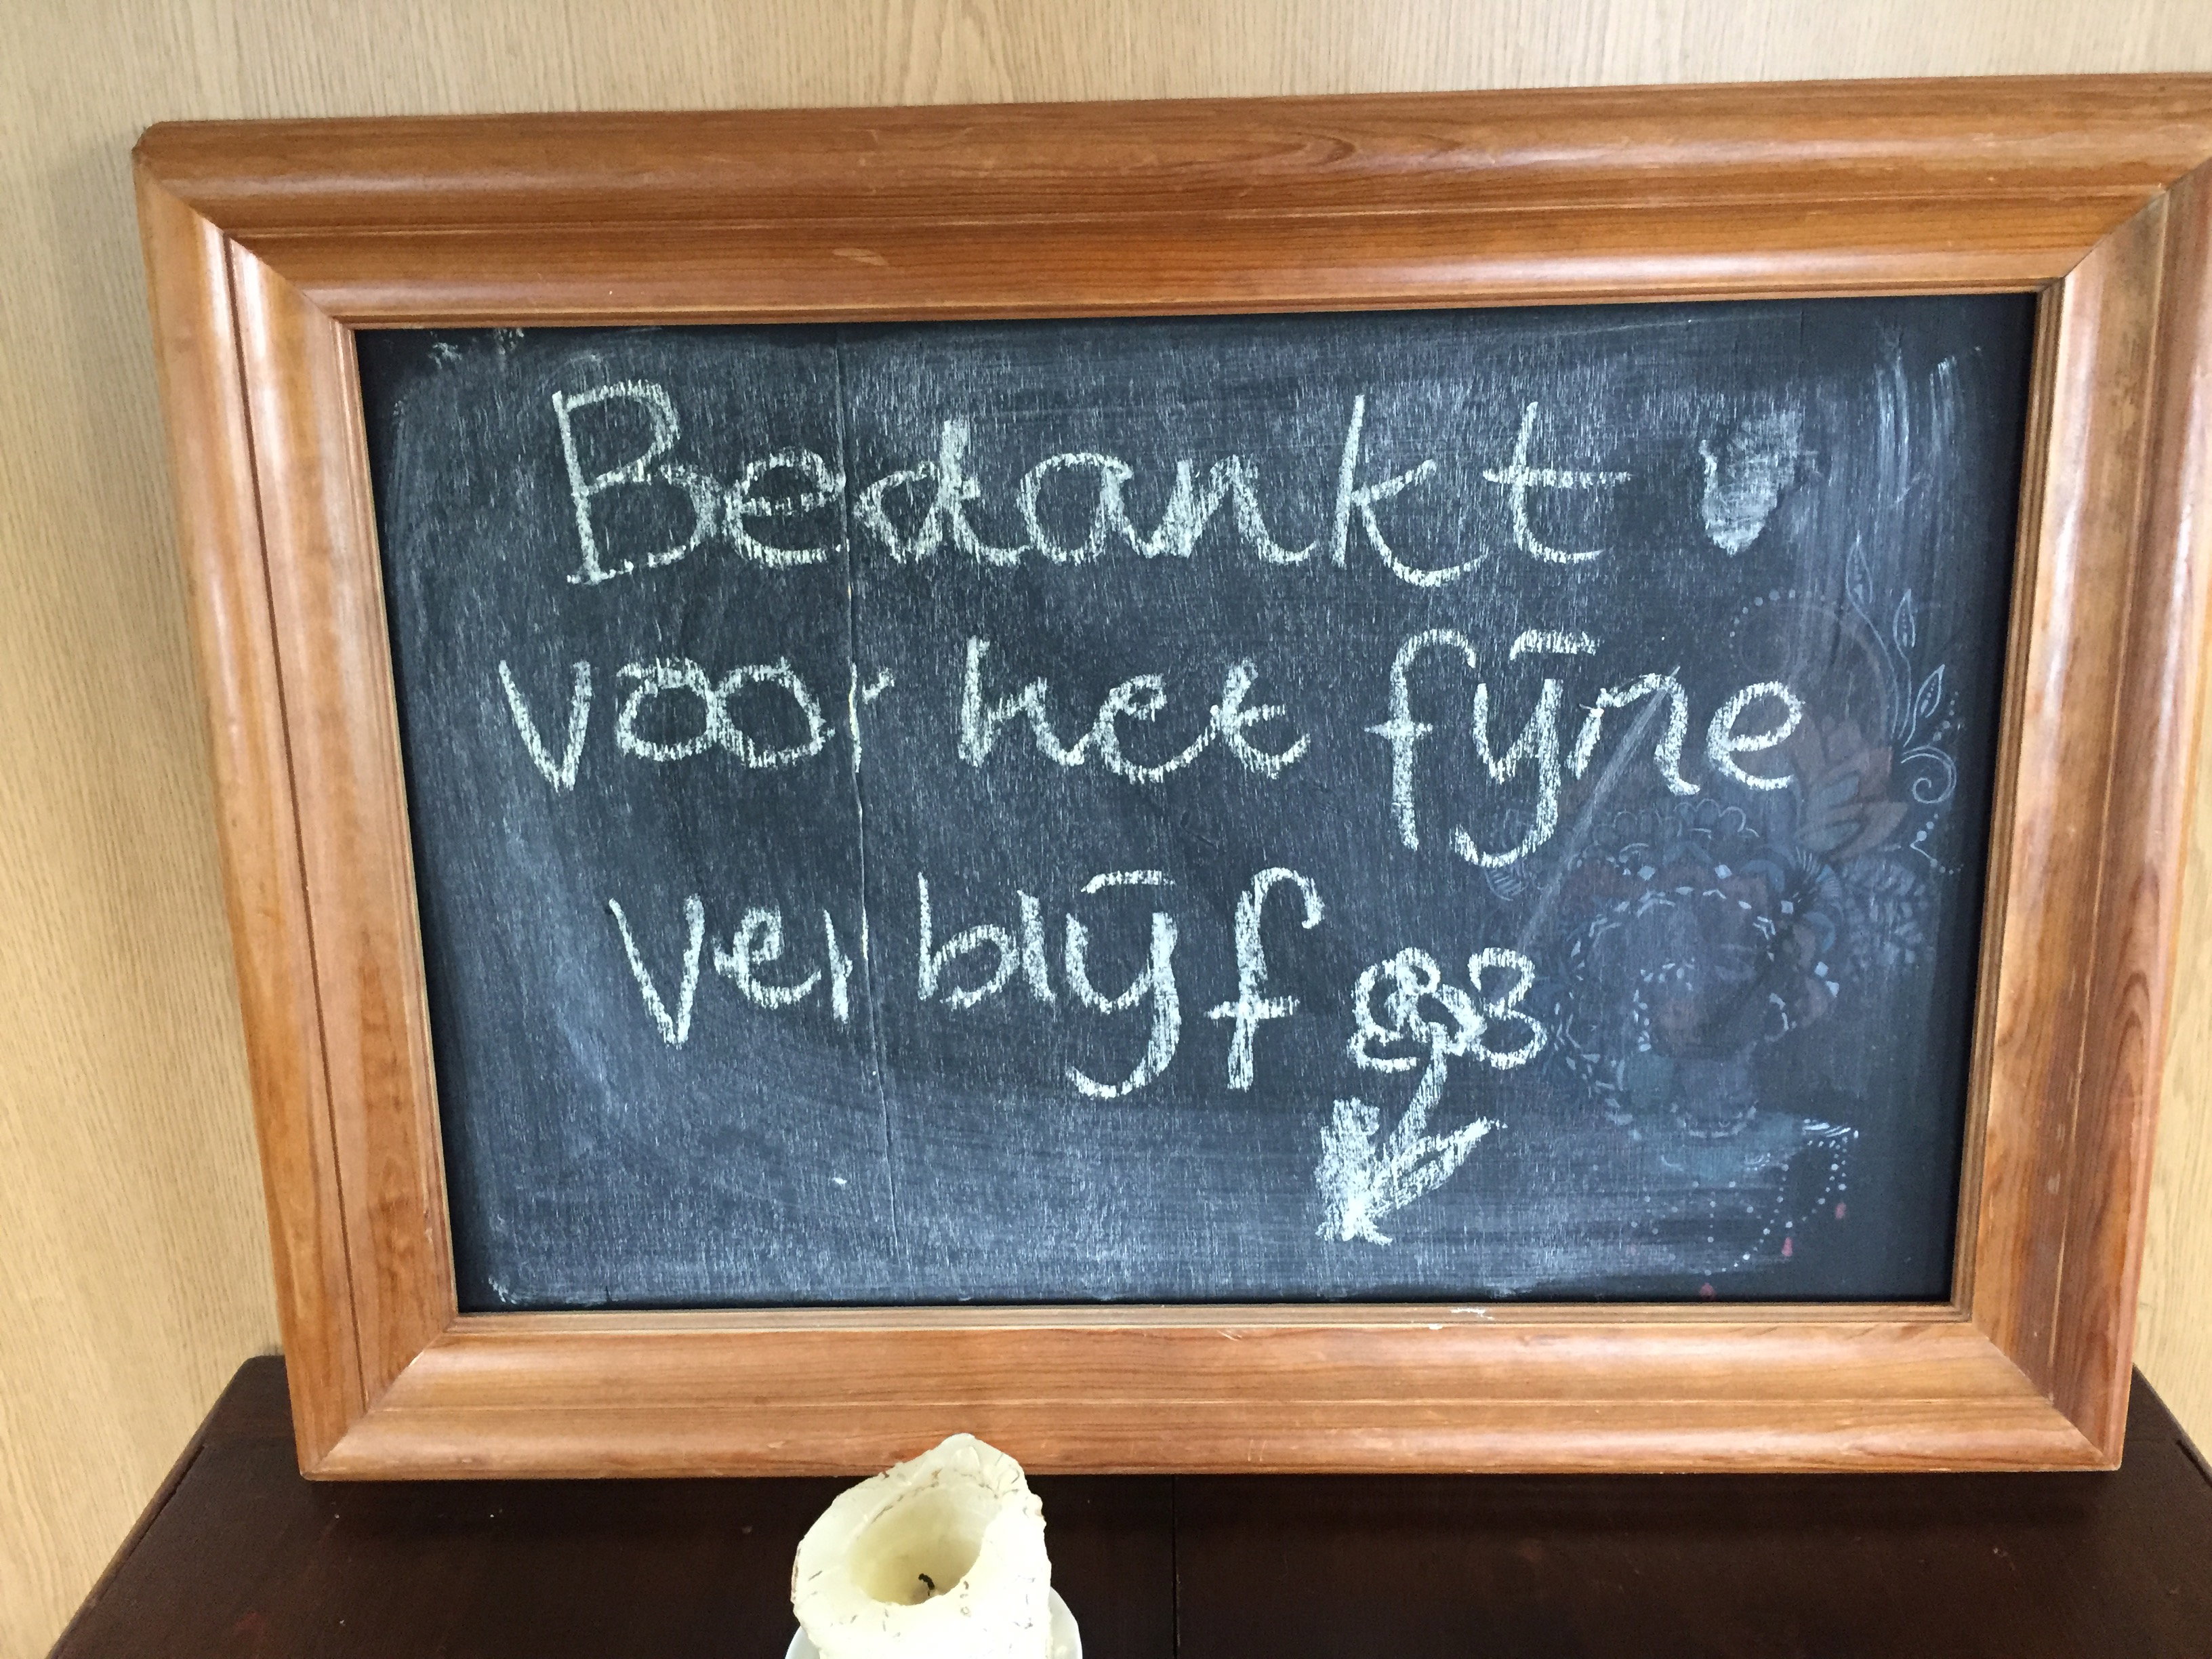 Bedankt
voor het fijne
verblijf